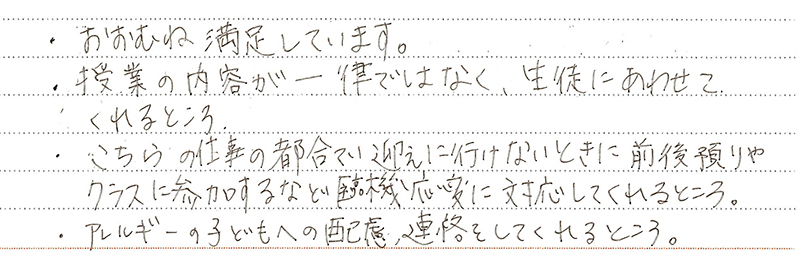 ・おおむね満足しています。
・授業の内容が一律ではなく、生徒にあわせて
くれるところ.
・こちらの仕事の都合でい迎えに行けないときに前後預りや
クラスに参加するなど臨機応変に対応してくれるところ。
・アレルギーの子どもへの配慮、連絡をしてくれるところ。